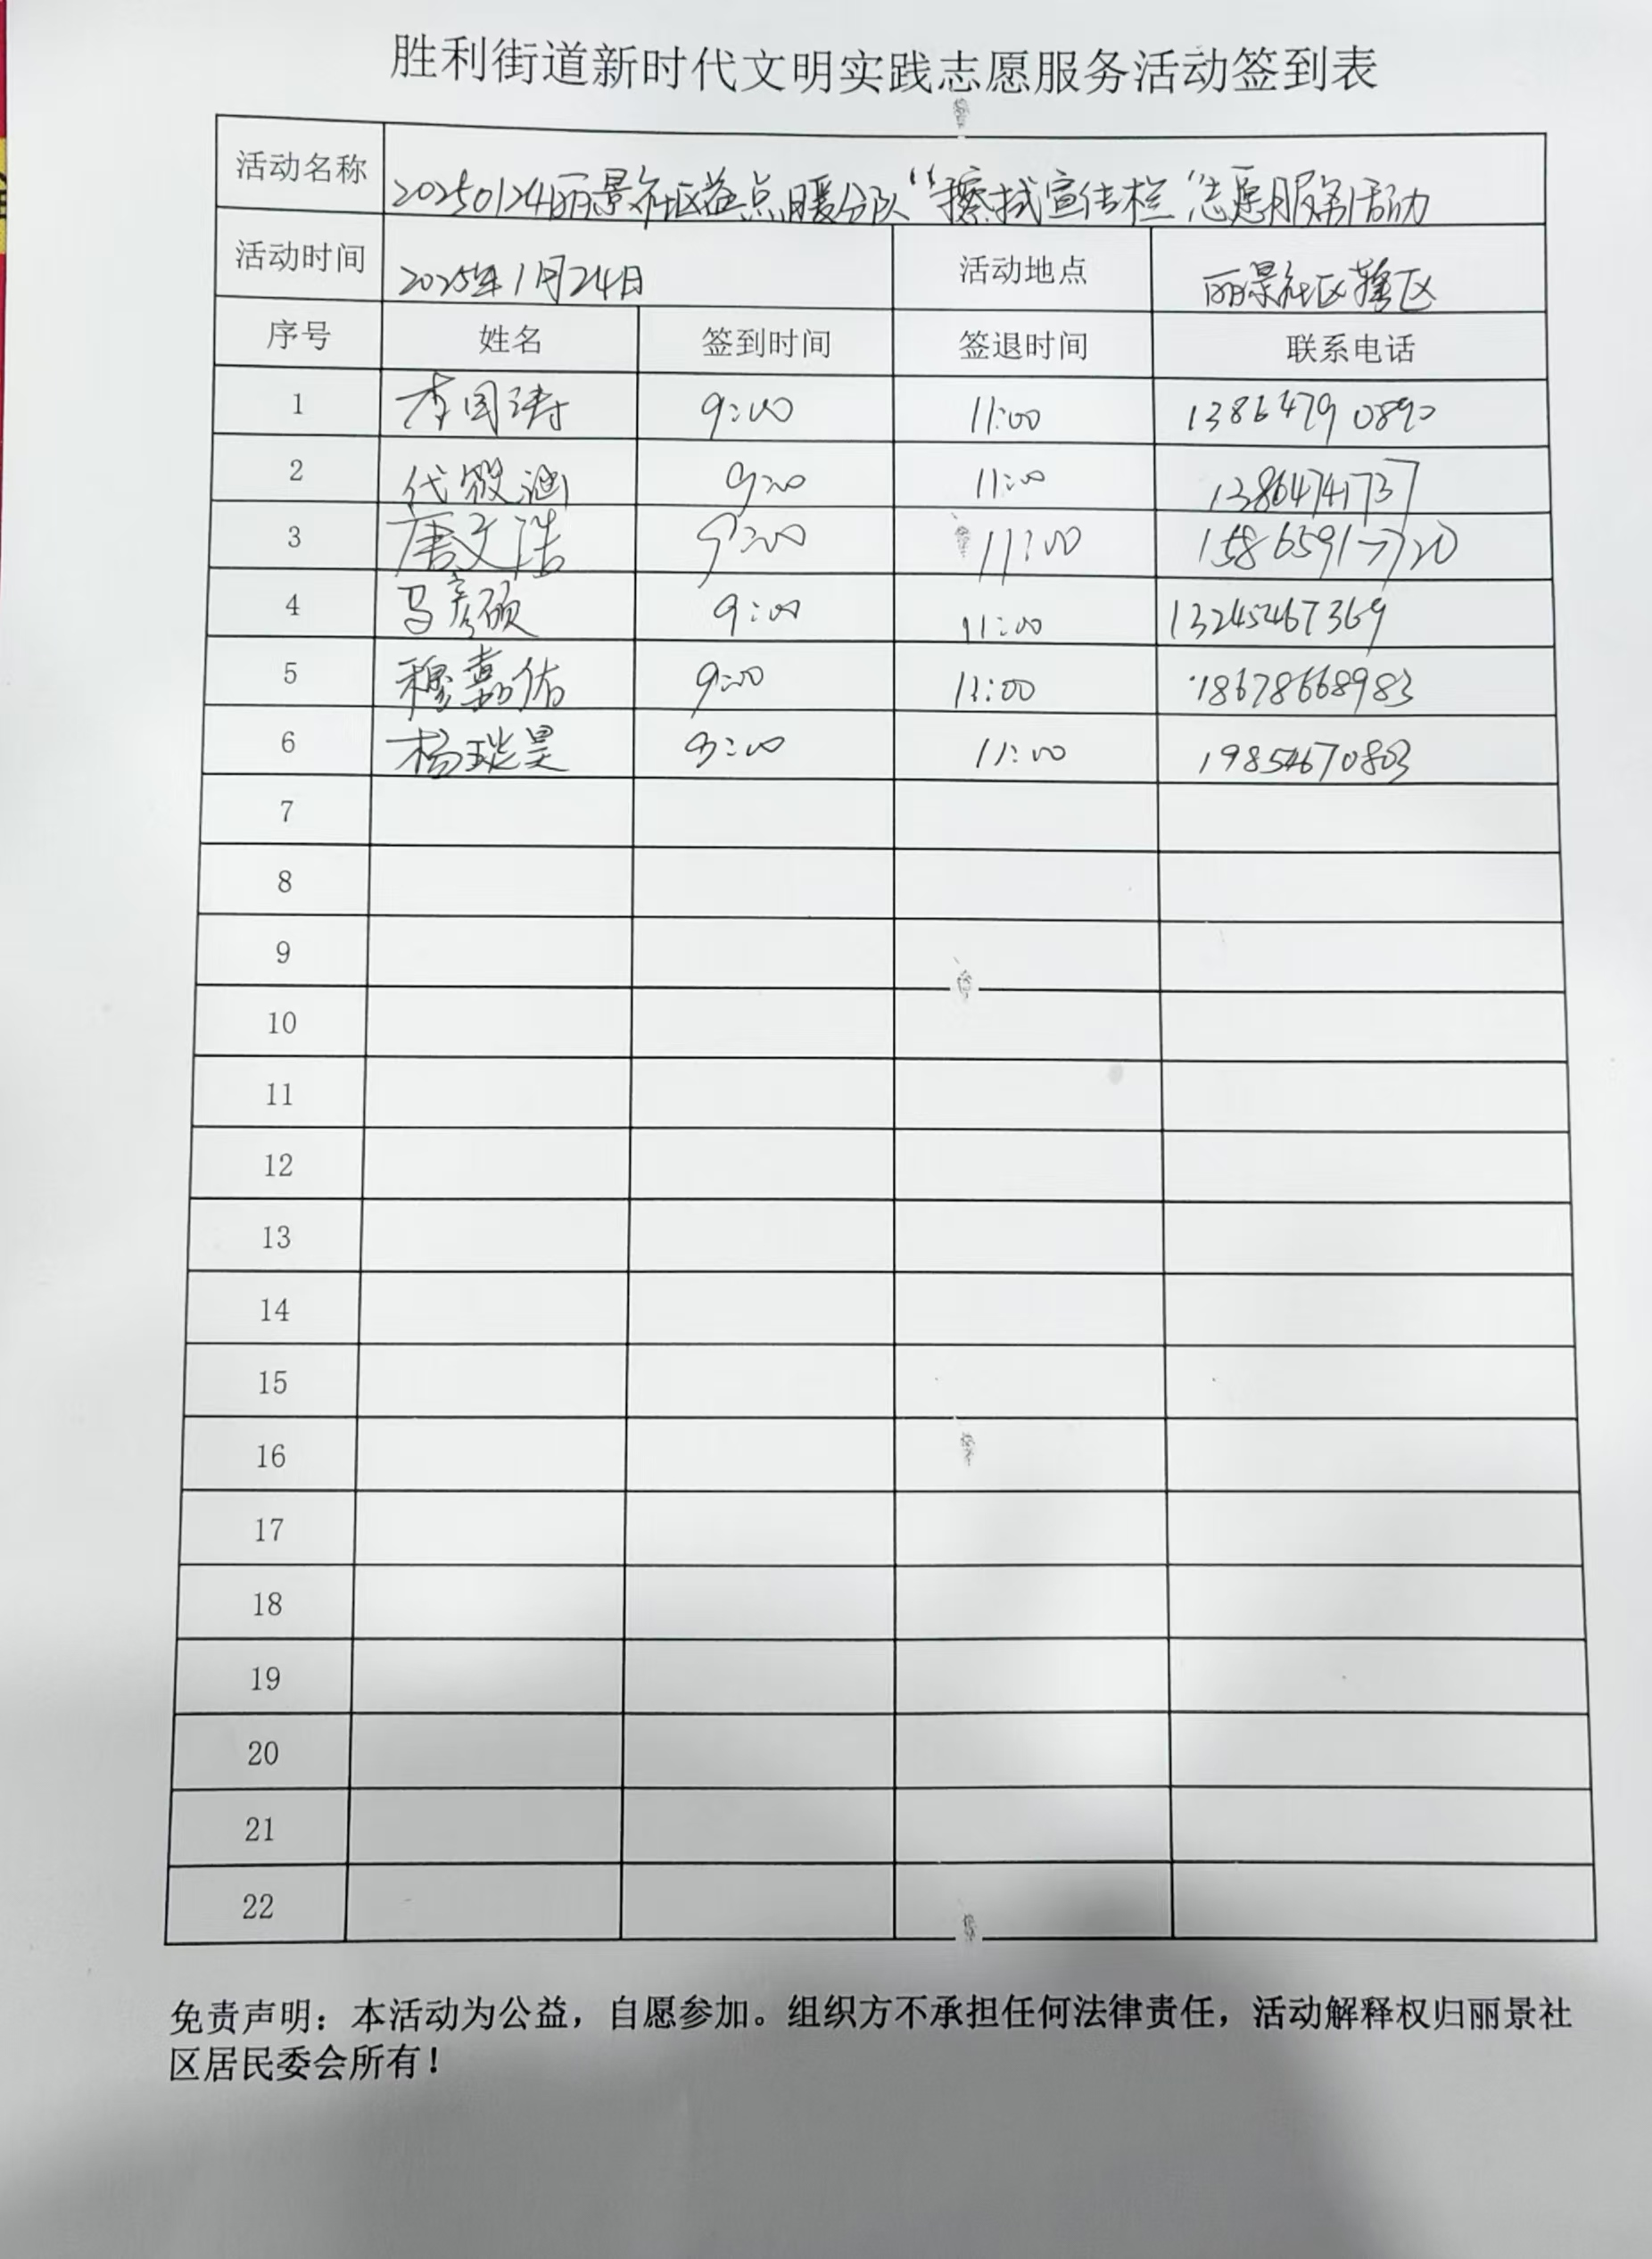 胜利街道新时代文明实践志愿服务活动签到表
活动名称 20250124丽景社区益点暖分队“擦拭宣传栏”志愿服务活动
活动时间 2025年1月24日 活动地点 丽景社区辖区
序号 姓名 签到时间 签退时间 联系电话
1 李国涛 9:00 11:00 13864790890
2 代毅涵 9:00 11:00 13864741737
3 唐文浩 9:00 11:00 15865917720
4 马彦硕 9:00 11:00 13245467369
5 穆嘉佑 9:00 11:00 18678668983
6 杨珖昊 9:00 11:00 19854670803
7
8
9
10
11
12
13
14
15
16
17
18
19
20
21
22
免责声明：本活动为公益，自愿参加。组织方不承担任何法律责任，活动解释权归丽景社
区居民委会所有！